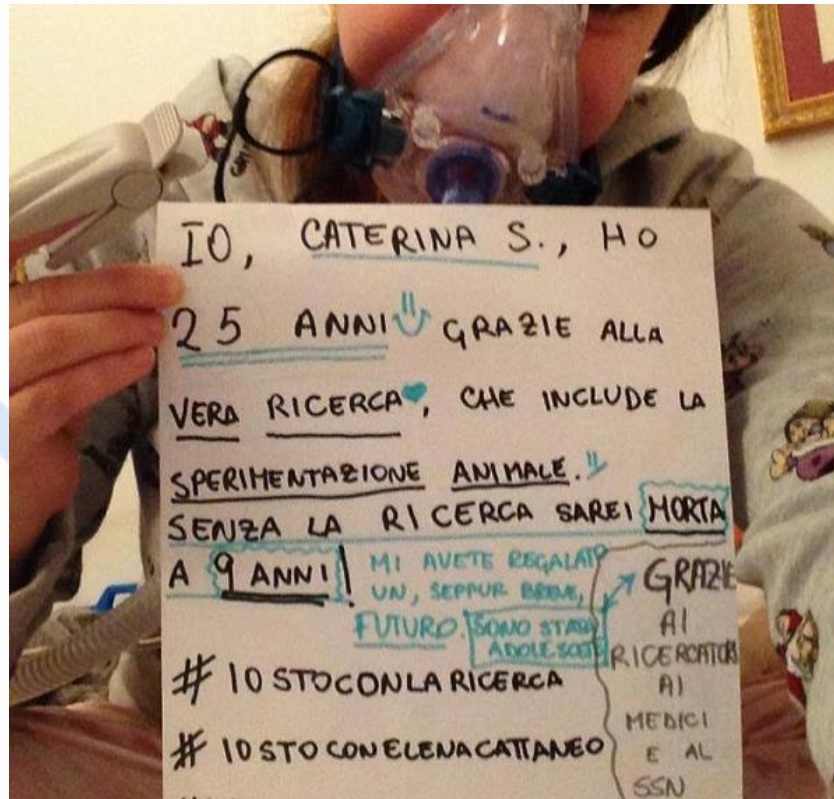 IO, CATERINA S., HO
25 ANNI GRAZIE ALLA
VERA RICERCA, CHE INCLUDE LA
SPERIMENTAZIONE ANIMALE.
SENZA LA RICERCA SAREI MORTA
A 9 ANNI!
MI AVETE REGALATO
UN, SEPPUR BREVE,
FUTURO. SONO STATA
ADOLESCENTE
GRAZIE
AI
RICERCATORI
AI
MEDICI
E AL
SSN
#IOSTOCONLARICERCA
#IOSTOCONELENACATTANEO